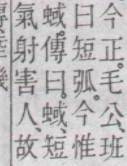 今正毛公班
曰短弧今惟
蜮傳曰蜮短
氣射害人故